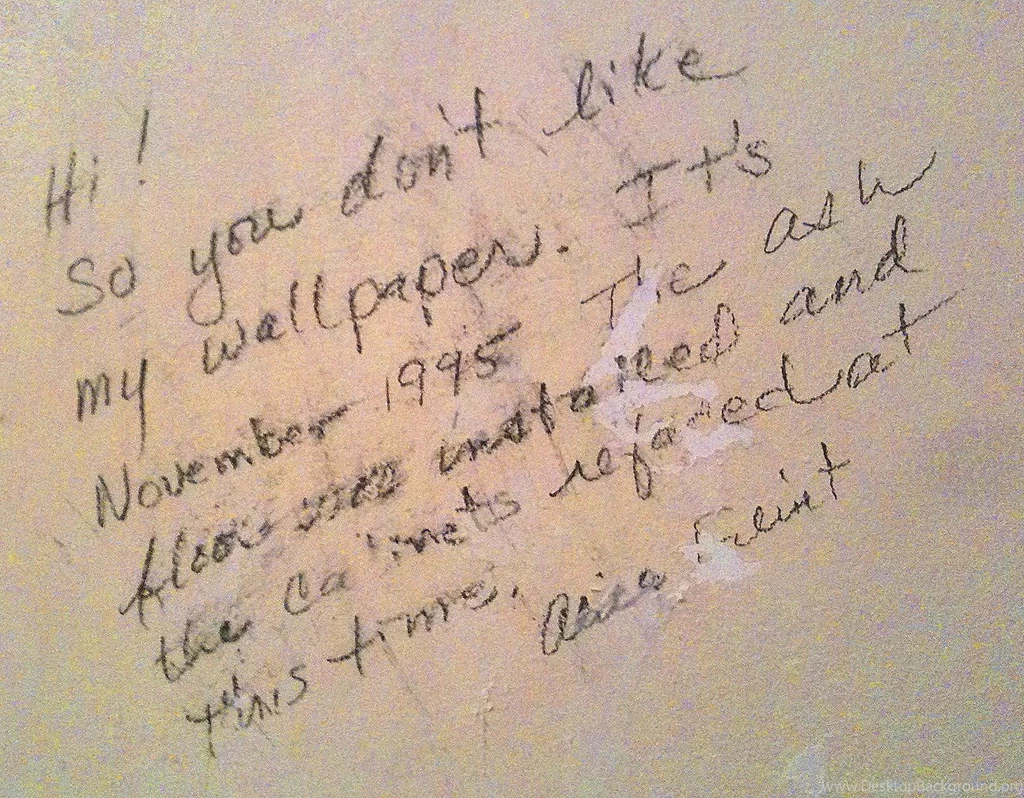 Hi!
So you don't like
my wallpaper. It's
November 1995 The ash
floor was installed and
the cabinets refaced at
this time.
www.DesktopBackground.org